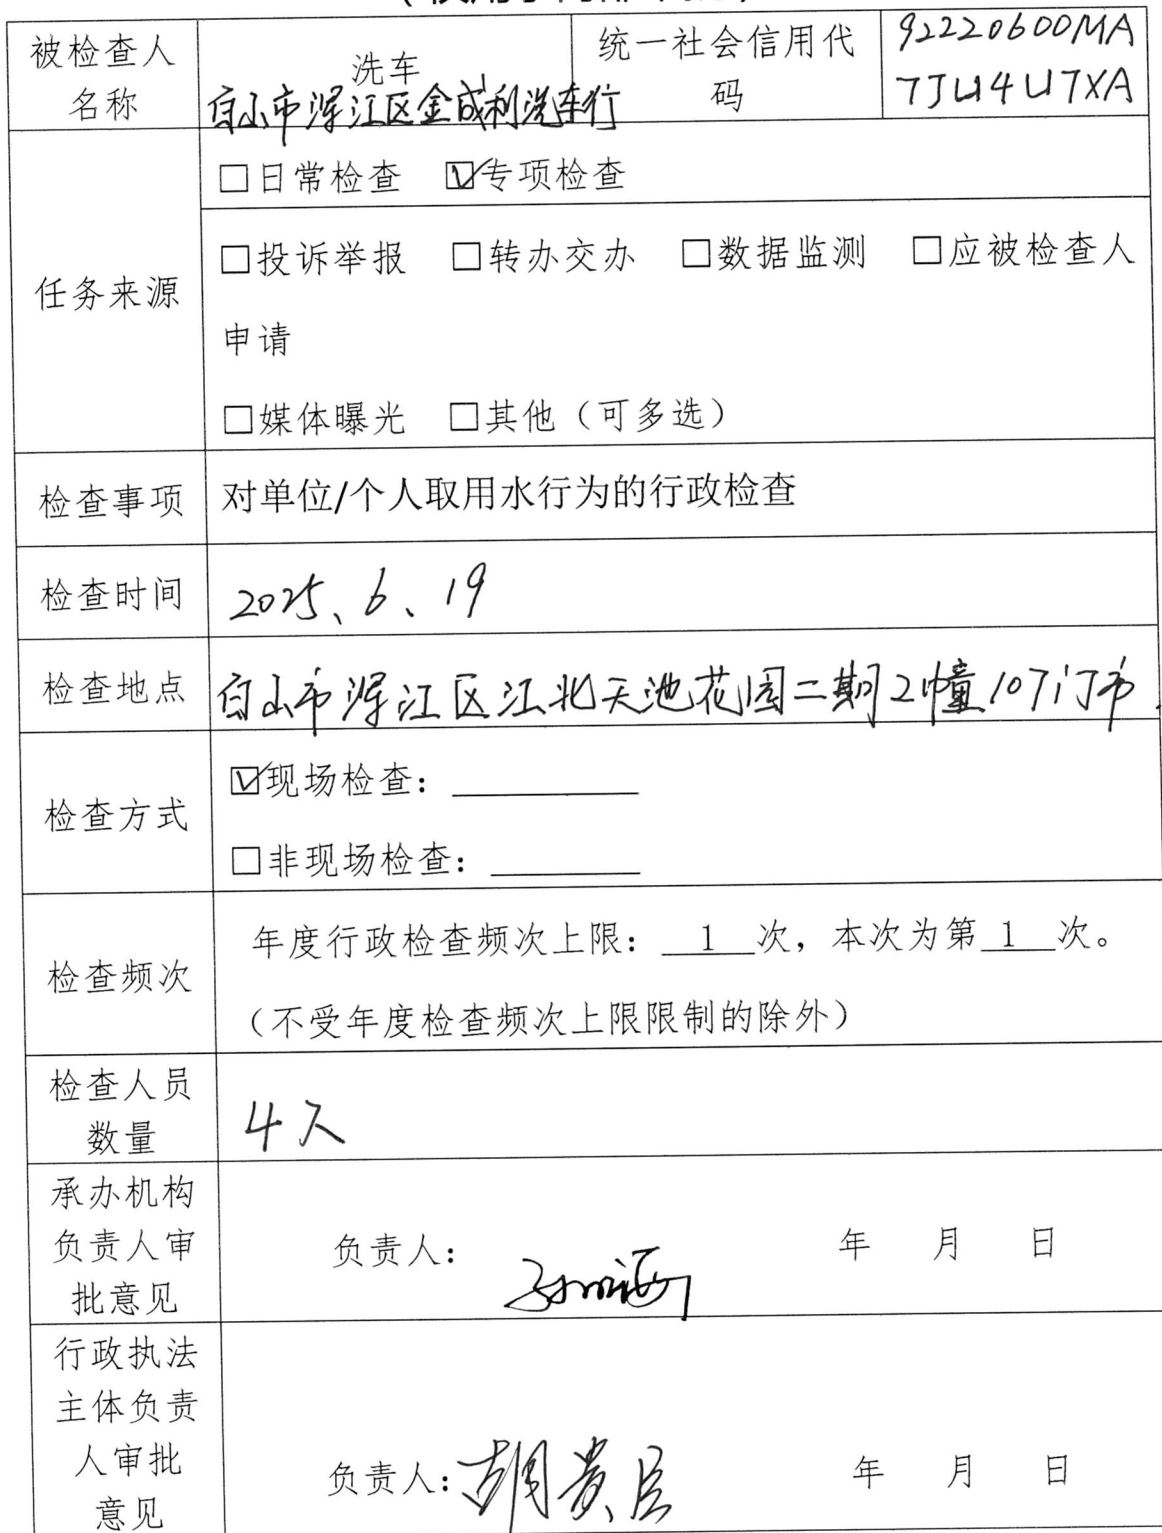 被检查人
名称
洗车
白山市浑江区金成利洗车行
统一社会信用代
码
92220600MA
7JU4U7XA
任务来源
□日常检查 ☑专项检查
□投诉举报 □转办交办 □数据监测 □应被检查人
申请
□媒体曝光 □其他（可多选）
检查事项
对单位/个人取用水行为的行政检查
检查时间
2025、6、19
检查地点
白山市浑江区江北天池花园二期2幢107门市
检查方式
☑现场检查：
□非现场检查：
检查频次
年度行政检查频次上限： 1 次，本次为第 1 次。
（不受年度检查频次上限限制的除外）
检查人员
数量
4人
承办机构
负责人审
批意见
负责人：
年 月 日
行政执法
主体负责
人审批
意见
负责人：胡贵臣
年 月 日